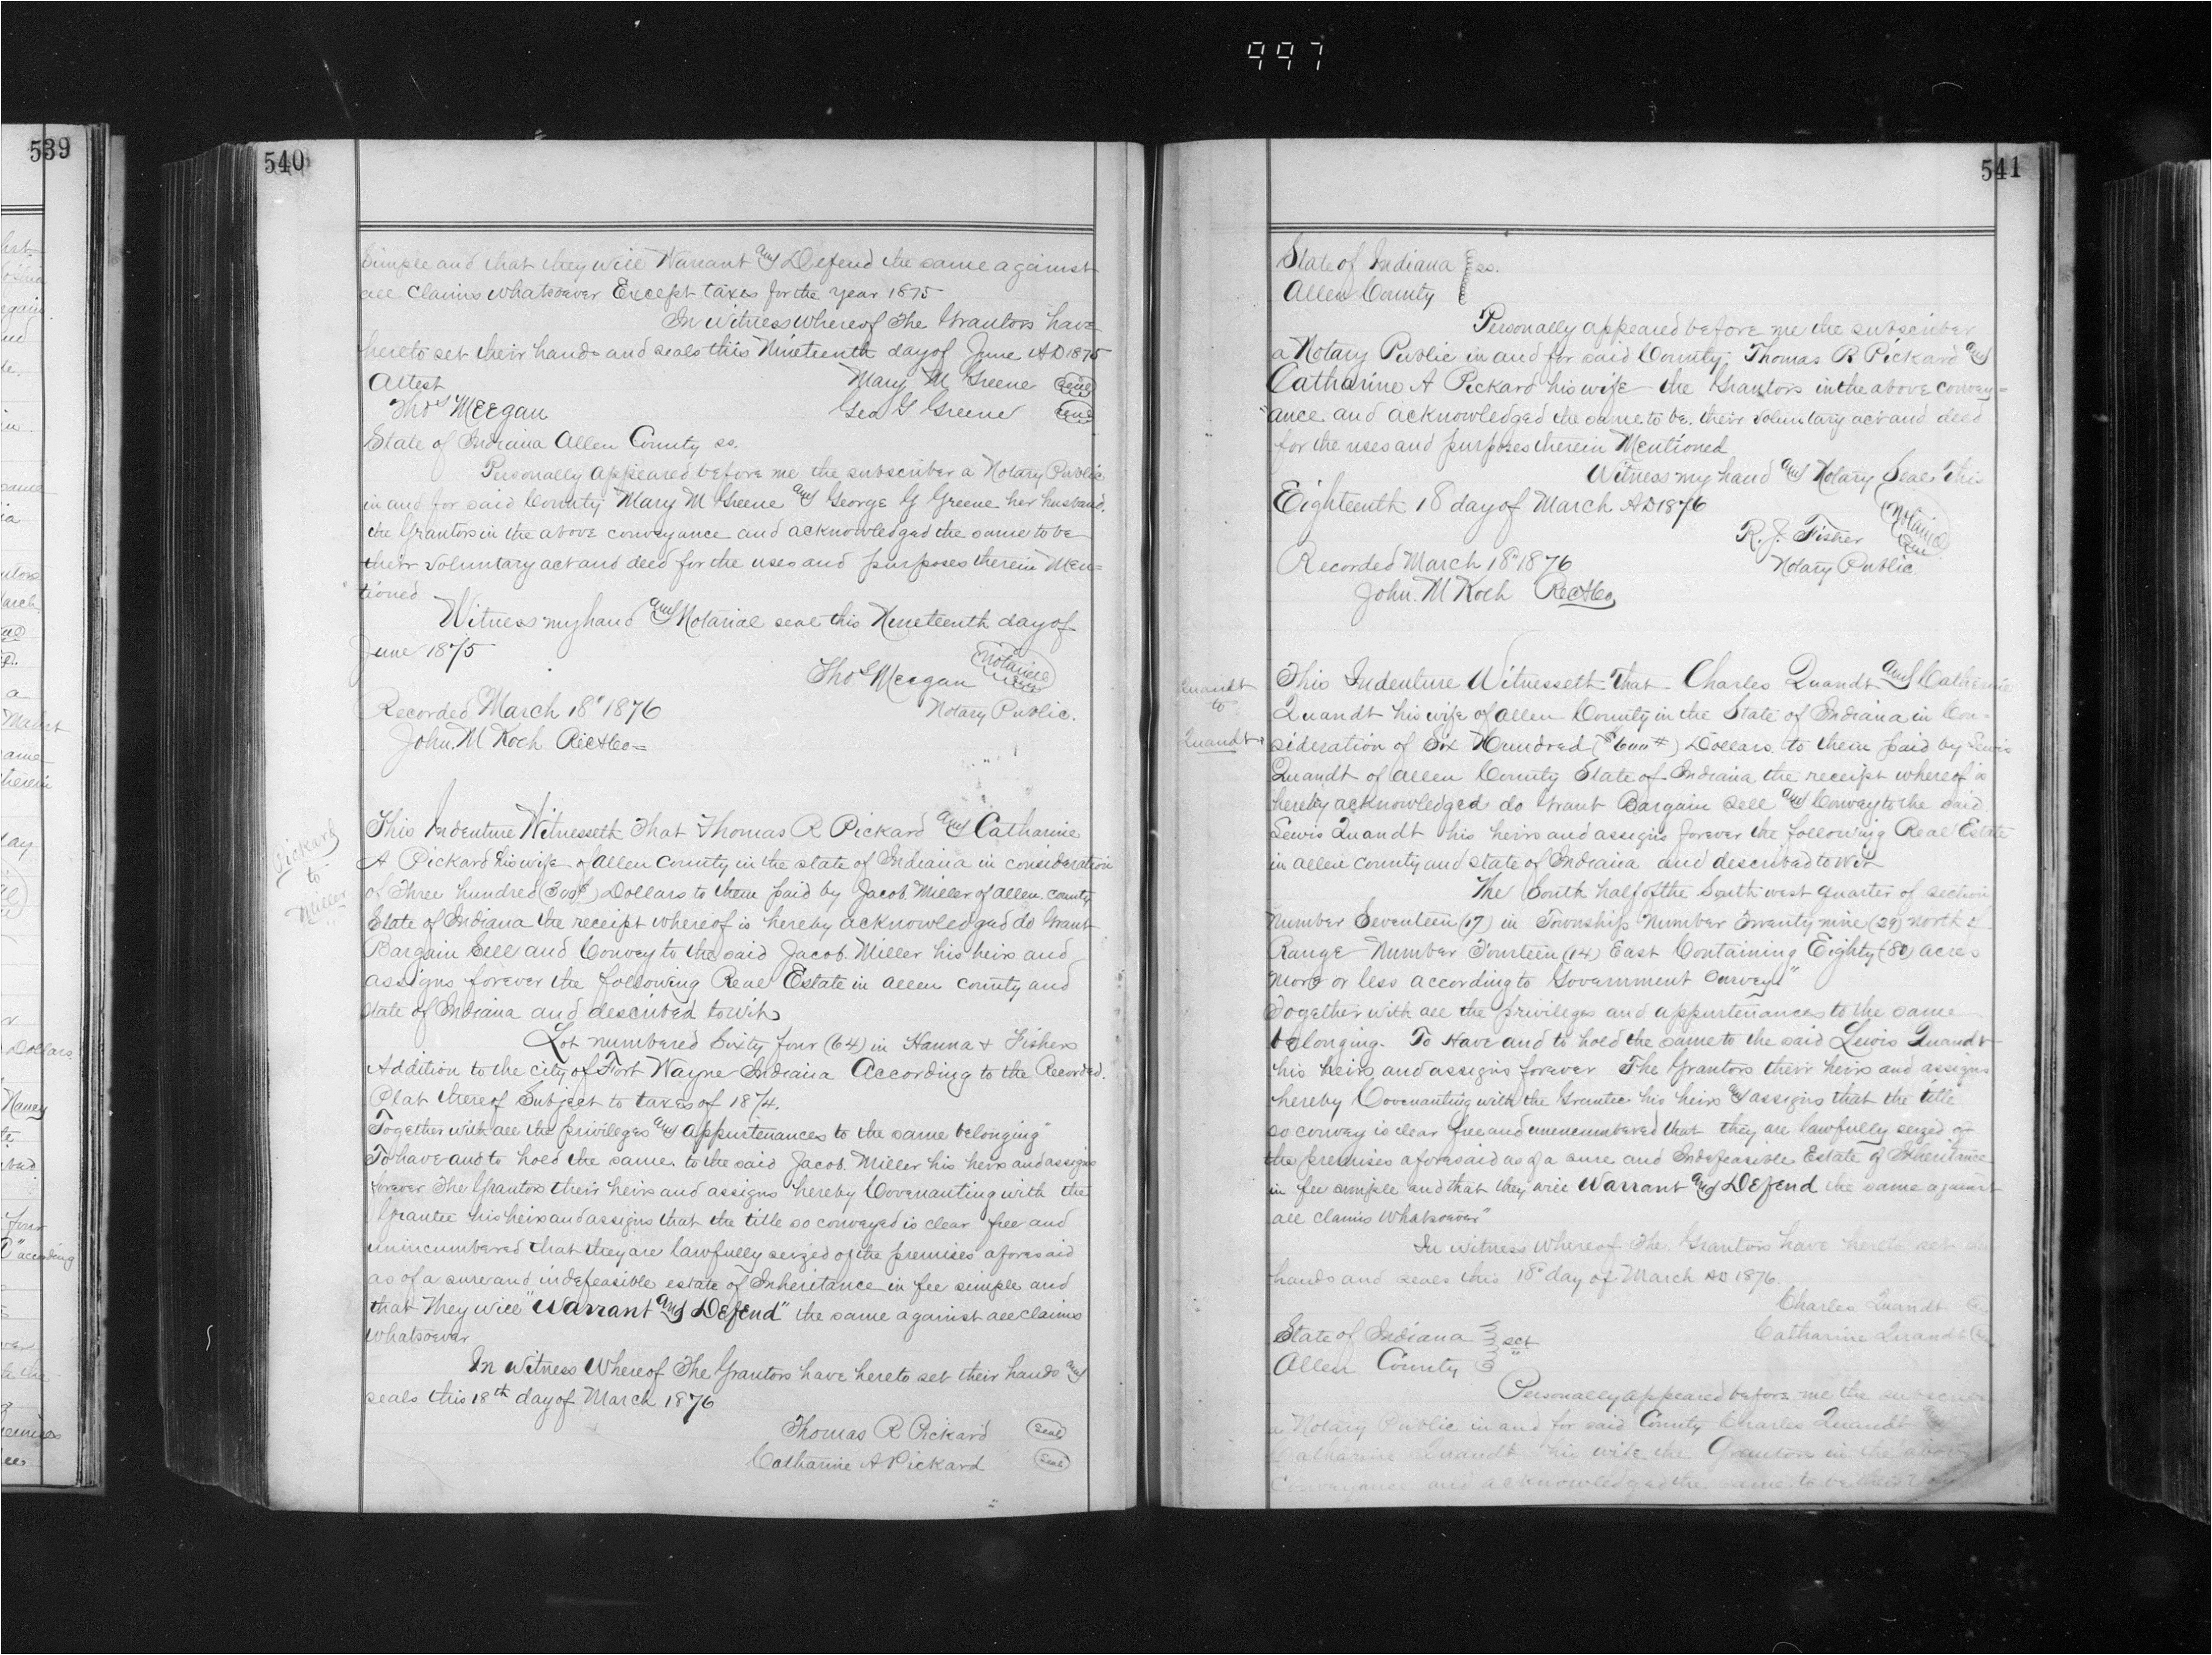 997
539
540
Simple and that they will Warrant and Defend the same against
all Claims whatsoever Except taxes for the year 1875
In witness whereof The Grantors have
hereto set their hands and seals this Nineteenth day of June AD 1875
Attest Mary M Greene Seal
Thos Meegan Geo G Greene Seal
State of Indiana Allen County ss.
Personally appeared before me the subscriber a Notary Public
in and for said County Mary M Greene and George G Greene her husband.
the Grantors in the above conveyance and acknowledged the same to be
their voluntary act and deed for the uses and purposes therein Men=
tioned
Witness my hand and Notarial seal this Nineteenth day of
June 1875
Thos Meegan Notariel Seal
Notary Public.
Recorded March 18" 1876
John. M Koch RecACo=
Pickard
to
Miller
This Indenture Witnesseth That Thomas R Pickard and Catharine
A Pickard his wife of Allen County in the state of Indiana in consideration
of Three hundred (300$) Dollars to them paid by Jacob Miller of Allen county
State of Indiana the receipt whereof is hereby acknowledged do Grant
Bargain Sell and Convey to the said Jacob. Miller his heirs and
assigns forever the following Real Estate in Allen county and
State of Indiana and described towit
Lot numbered Sixty four (64) in Hanna & Fishers
Addition to the city of Fort Wayne Indiana According to the Recorded.
Plat thereof Subject to taxes of 1874.
Together with all the privileges and appurtenances to the same belonging"
To have and to hold the same to the said Jacob. Miller his heirs and assigns
forever The Grantors their heirs and assigns hereby Covenanting with the
Grantee his heirs and assigns that the title so conveyed is clear free and
unincumbered that they are lawfully seized of the premises aforesaid
as of a sure and indefeasible estate of Inheritance in fee simple and
that They will "Warrant and Defend" the same against all claims
whatsoever
In Witness Whereof The Grantors have hereto set their hands and
seals this 18th day of March 1876
Thomas R Pickard Seal
Catharine A Pickard Seal
541
State of Indiana ss.
Allen County
Personally appeared before me the subscriber
a Notary Public in and for said County Thomas R Pickard and
Catharine A Pickard his wife the Grantors in the above convey=
ance and acknowledged the same to be their voluntary act and deed
for the uses and purposes therein Mentioned
Witness my hand and Notary Seal This
Eighteenth 18 day of March AD 1876
R. J. Fisher Notarial Seal
Notary Public.
Recorded March 18" 1876
John. M Koch RecACo
Quandt
to
Quandt
This Indenture Witnesseth That Charles Quandt and Catharine
Quandt his wife of Allen County in the State of Indiana in Con=
sideration of Six Hundred ($600#) Dollars to them paid by Lewis
Quandt of Allen County State of Indiana the receipt whereof is
hereby acknowledged do Grant Bargain Sell and Convey to the said
Lewis Quandt his heirs and assigns forever the following Real Estate
in Allen county and state of Indiana and described towit
The South half of the South west quarter of section
number Seventeen (17) in Township Number Twenty nine (29) north &
Range Number Fourteen (14) East Containing Eighty (80) acres
more or less according to Government Survey"
Together with all the privileges and appurtenances to the same
belonging. To Have and to hold the same to the said Lewis Quandt
his heirs and assigns forever The Grantors their heirs and assigns
hereby Covenanting with the Grantee his heirs and assigns that the title
so convey is clear free and unencumbered that they are lawfully seized of
the premises aforesaid as of a sure and Indefeasible Estate of Inheritance
in fee simple and that they will Warrant and Defend the same against
all claims Whatsoever"
In witness whereof The Grantors have hereto set
hands and seals this 18" day of March AD 1876.
Charles Quandt
Catharine Quandt
State of Indiana sct
Allen County
Personally appeared before me the subscriber
a Notary Public in and for said County Charles Quandt and
Catharine Quandt his wife the Grantors in the above
Conveyance and acknowledged the same to be their